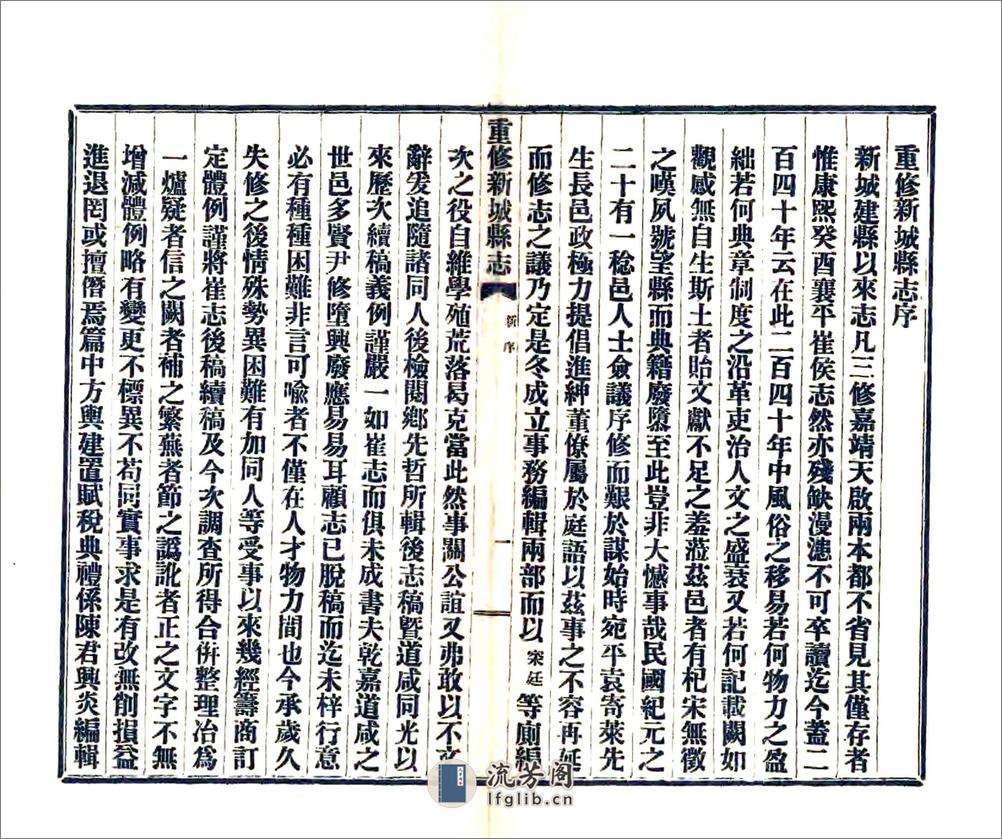 重修新城縣志序
新城建縣以來志凡三修嘉靖天啟兩本都不省見其僅存者
惟康熙癸酉襄平崔侯志然亦殘缺漫漶不可卒讀迄今蓋二
百四十年云在此二百四十年中風俗之移易若何物力之盈
絀若何典章制度之沿革吏治人文之盛衰又若何記載闕如
觀感無自生斯土者貽文獻不足之羞蒞茲邑者有杞宋無徵
之嘆夙號望縣而典籍廢墮至此豈非大憾事哉民國紀元之
二十有一稔邑人士僉議序修而艱於謀始時宛平袁寄萊先
生長邑政極力提倡進紳董僚屬於庭語以茲事之不容再延
而修志之議乃定是冬成立事務編輯兩部而以寀廷等廁編
重修新城縣志
新序
一
次之役自維學殖荒落曷克當此然事關公誼又弗敢以不文
辭爰追隨諸同人後檢閱鄉先哲所輯後志稿暨道咸同光以
來歷次續稿義例謹嚴一如崔志而俱未成書夫乾嘉道咸之
世邑多賢尹修墮興廢應易易耳顧志已脫稿而迄未梓行意
必有種種困難非言可喩者不僅在人才物力間也今承歲久
失修之後情殊勢異困難有加同人等受事以來幾經籌商訂
定體例謹將崔志後稿續稿及今次調查所得合倂整理冶為
一爐疑者信之闕者補之繁蕪者節之譌訛者正之文字不無
增減體例略有變更不標異不苟同實事求是有改無削損益
進退罔或擅僭焉篇中方輿建置賦稅典禮係陳君興炎編輯
流芳阁
lfglib.cn